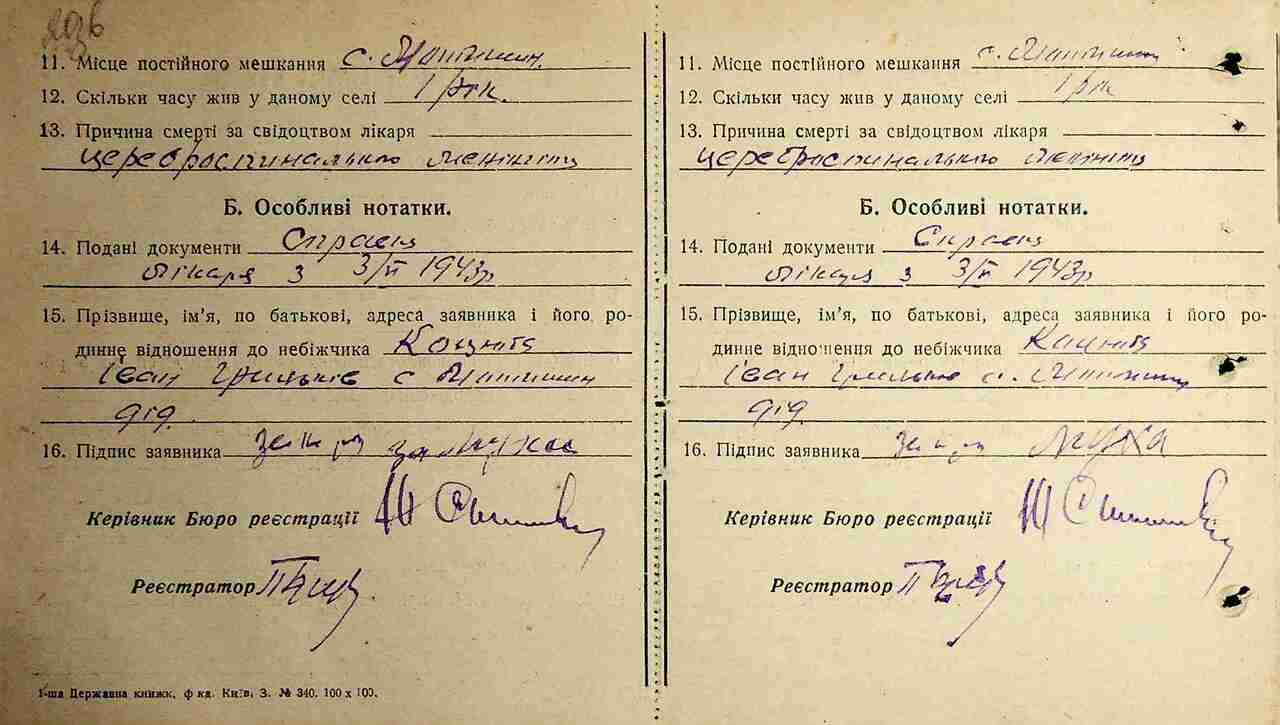 206
11. Місце постійного мешкання с.
12. Скільки часу жив у даному селі 1 рік.
13. Причина смерті за свідоцтвом лікаря
цереброспинального менінгіта
Б. Особливі нотатки.
14. Подані документи Справка
лікаря з 3/II 1943р
15. Прізвище, ім’я, по батькові, адреса заявника і його ро-
динне відношення до небіжчика
Іван с
дід.
16. Підпис заявника
Керівник Бюро реєстрації
Реєстратор
1-ша Державна книжк. ф-ка. Київ, З. № 340. 100 х 100.
11. Місце постійного мешкання с.
12. Скільки часу жив у даному селі 1 рік
13. Причина смерті за свідоцтвом лікаря
цереброспинального менінгіта
Б. Особливі нотатки.
14. Подані документи Справка
лікаря з 3/II 1943р
15. Прізвище, ім’я, по батькові, адреса заявника і його ро-
динне відношення до небіжчика
Іван с.
дід.
16. Підпис заявника
Керівник Бюро реєстрації
Реєстратор